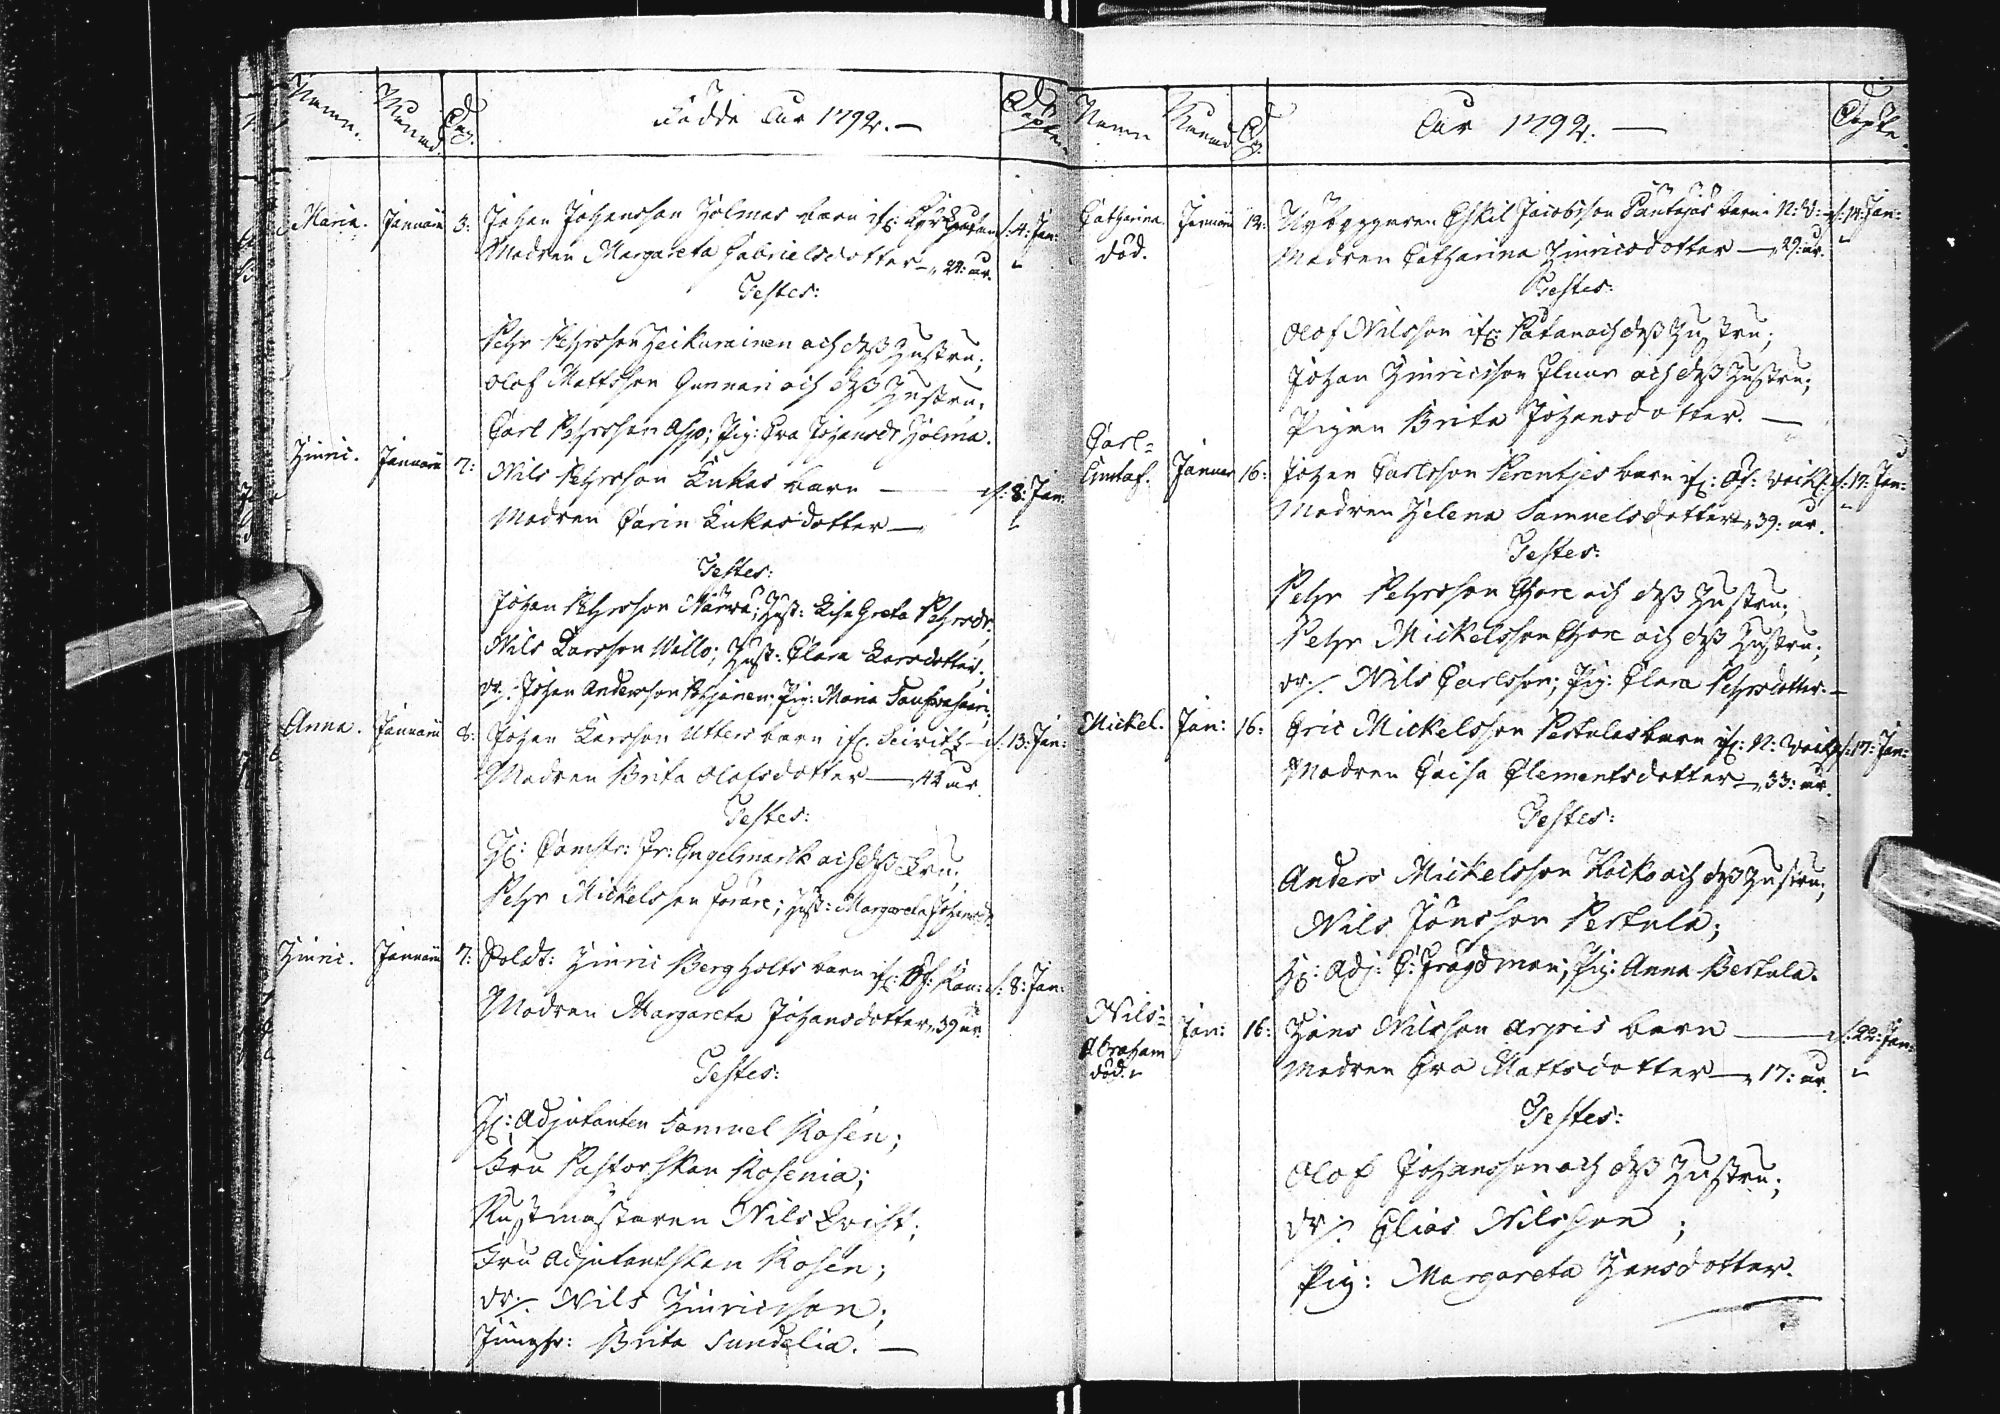 Namn. Månad. Dag. Födde Åar 1792. — Döpte.
Maria. Januarii 3: Johan Johansson Holmas barn if: s: 4: Jan:
Modren Margareta Gabrielsdotter — 22: år.
Testes:
Pehr Pehrsson Heikurainen och dess Hustru;
Olof Mattsson Gunnari och dess Hustru;
Carl Pehrsson Aho; Pig: Eva Johansdr Holma.
Hinric. Januarii 7: Nils Pehrsson Lukas barn — s: 8: Jan:
Modren Carin Lukasdotter —
Testes:
Johan Pehrsson Närvä; Hust: Lisa Greta Pehrsdr.
Nils Larsson Willo; Hust: Clara Larsdotter;
dr: Johan Andersson Pig: Maria
Anna. Januarii 8: Johan Larsson Utters barn if: s: 13: Jan:
Modren Brita Olofsdotter — 42 år.
Testes:
H: Fr: Engelmark och dess Fru;
Pehr Mickelsson Hust: Margareta Johansdr.
Hinric. Januarii 7: Soldt: Hinric Bergholts barn if: s: 8: Jan:
Modren Margareta Johansdotter, 39 år.
Testes:
H: Adjutanten Samuel Rosén;
Fru Pastorskan Rosenia;
Rustmästaren Nils
Fru Adjutantskan Rosén;
dr: Nils Hinricsson;
Jungfr: Brita Sundelia. —
Namn Månad Dag. Åar 1792. — Döpte.
Catharina död. Januarii 12: Nybyggaren Eskil Jacobsson barn i N: s: 14: Jan:
Modren Catharina Hinricsdotter — 29: år.
Testes:
Olof Nilsson if: och dess Hustru;
Johan Hinricsson och dess Hustru;
Pigan Brita Johansdotter. —
Carl= Gustaf. Januar 16: Johan Carlsson barn if: Öf: s: 17: Jan:
Modren Helena Samuelsdotter, 39: år.
Testes:
Pehr Pehrsson och dess Hustru;
Pehr Mickelsson och dess Hustru;
dr: Nils Carlsson; Pig: Clara Pehrsdotter. —
Mickel. Jan: 16: Eric Mickelsson Pertulas barn if: N: s: 17: Jan:
Modren Caisa Clementsdotter — 33: år.
Testes:
Anders Mickelsson och dess Hustru;
Nils Jönsson Pertula;
H: Adj: C: Frågdman; Pig: Anna Bertula.
Nils= Abraham död. Jan: 16: Hans Nilsson Arpis barn — s: 22: Jan:
Modren Eva Mattsdotter — 17: år.
Testes:
Olof Johansson och dess Hustru;
dr: Elias Nilsson;
Pig: Margareta Hansdotter.